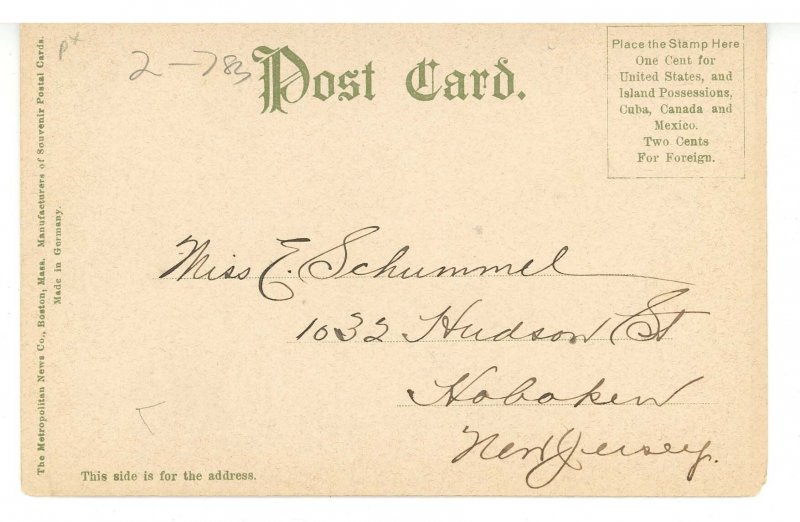 px
2-783
Post Card.
Place the Stamp Here
One Cent for
United States, and
Island Possessions,
Cuba, Canada and
Mexico.
Two Cents
For Foreign.
The Metropolitan News Co., Boston, Mass. Manufacturers of Souvenir Postal Cards.
Made in Germany.
Miss E. Schummel
1032 Hudson St
Hoboken
New Jersey.
This side is for the address.